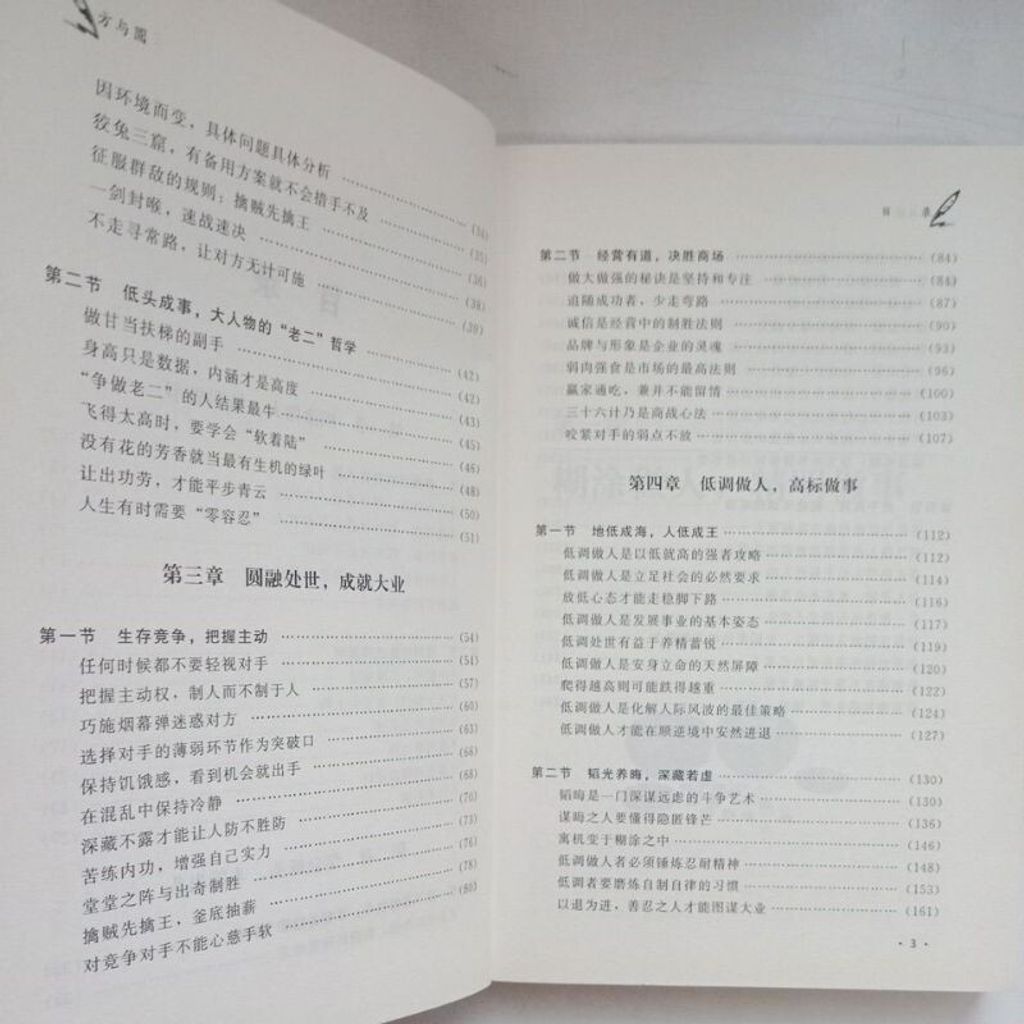 方与圆
因环境而变，具体问题具体分析 …… (34)
狡兔三窟，有备用方案就不会措手不及 …… (35)
征服群敌的规则：擒贼先擒王 …… (36)
一剑封喉，速战速决 …… (38)
不走寻常路，让对方无计可施 …… (39)
第二节 低头成事，大人物的“老二”哲学 …… (42)
做甘当扶梯的副手 …… (42)
身高只是数据，内涵才是高度 …… (43)
“争做老二”的人结果最牛 …… (45)
飞得太高时，要学会“软着陆” …… (46)
没有花的芳香就当最有生机的绿叶 …… (48)
让出功劳，才能平步青云 …… (50)
人生有时需要“零容忍” …… (51)
第三章 圆融处世，成就大业
第一节 生存竞争，把握主动 …… (54)
任何时候都不要轻视对手 …… (54)
把握主动权，制人而不制于人 …… (57)
巧施烟幕弹迷惑对方 …… (60)
选择对手的薄弱环节作为突破口 …… (63)
保持饥饿感，看到机会就出手 …… (66)
在混乱中保持冷静 …… (68)
深藏不露才能让人防不胜防 …… (70)
苦练内功，增强自己实力 …… (73)
堂堂之阵与出奇制胜 …… (76)
擒贼先擒王，釜底抽薪 …… (78)
对竞争对手不能心慈手软 …… (80)
目 录
第二节 经营有道，决胜商场 …… (84)
做大做强的秘诀是坚持和专注 …… (84)
追随成功者，少走弯路 …… (87)
诚信是经营中的制胜法则 …… (90)
品牌与形象是企业的灵魂 …… (93)
弱肉强食是市场的最高法则 …… (96)
赢家通吃，兼并不能留情 …… (100)
三十六计乃是商战心法 …… (103)
咬紧对手的弱点不放 …… (107)
第四章 低调做人，高标做事
第一节 地低成海，人低成王 …… (112)
低调做人是以低就高的强者攻略 …… (112)
低调做人是立足社会的必然要求 …… (114)
放低心态才能走稳脚下路 …… (116)
低调做人是发展事业的基本姿态 …… (117)
低调处世有益于养精蓄锐 …… (119)
低调做人是安身立命的天然屏障 …… (120)
爬得越高则可能跌得越重 …… (122)
低调做人是化解人际风波的最佳策略 …… (124)
低调做人才能在顺逆境中安然进退 …… (127)
第二节 韬光养晦，深藏若虚 …… (130)
韬晦是一门深谋远虑的斗争艺术 …… (130)
谋晦之人要懂得隐匿锋芒 …… (136)
寓机变于糊涂之中 …… (146)
低调做人者必须锤炼忍耐精神 …… (148)
低调者要磨炼自制自律的习惯 …… (153)
以退为进，善忍之人才能图谋大业 …… (161)
· 3 ·